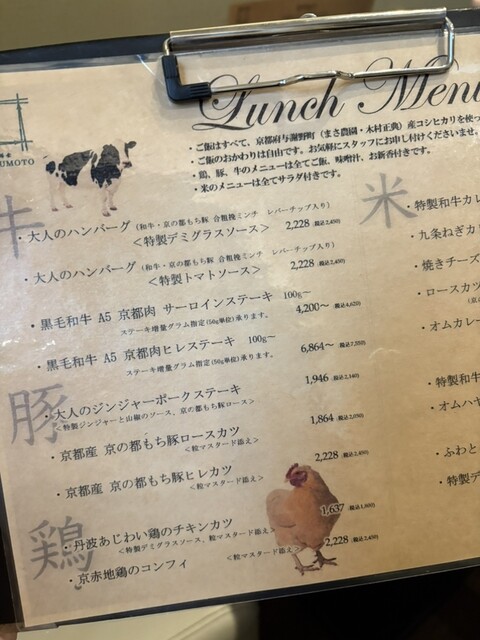 Lunch Menu
UMOTO
・ご飯はすべて、京都府与謝野町（まさ農園・木村正典）産コシヒカリを使っ
・ご飯のおかわりは自由です。お気軽にスタッフにお申し付けくださいませ。
・鶏、豚、牛のメニューは全てご飯、味噌汁、お新香付きです。
・米のメニューは全てサラダ付きです。
牛
・大人のハンバーグ（和牛・京の都もち豚 合粗挽ミンチ レバーチップ入り）
＜特製デミグラスソース＞ 2,228（税込2,450）
・大人のハンバーグ（和牛・京の都もち豚 合粗挽ミンチ レバーチップ入り）
＜特製トマトソース＞ 2,228（税込2,450）
・黒毛和牛 A5 京都肉 サーロインステーキ 100g～
ステーキ増量グラム指定(50g単位)承ります。 4,200～（税込4,620）
・黒毛和牛 A5 京都肉ヒレステーキ 100g～
ステーキ増量グラム指定(50g単位)承ります。 6,864～（税込7,550）
豚
・大人のジンジャーポークステーキ 1,946（税込2,140）
＜特製ジンジャーと山椒のソース、京の都もち豚ロース＞
・京都産 京の都もち豚ロースカツ 1,864（税込2,050）
＜粒マスタード添え＞
・京都産 京の都もち豚ヒレカツ 2,228（税込2,450）
＜粒マスタード添え＞
鶏
・丹波あじわい鶏のチキンカツ 1,637（税込1,800）
＜特製デミグラスソース、粒マスタード添え＞
・京赤地鶏のコンフィ ＜粒マスタード添え＞ 2,228（税込2,450）
米
・特製和牛カレ
・九条ねぎカ
・焼きチーズ
・ロースカツ
・オムカレー
・特製和牛
・オムハヤ
・ふわと
・特製デ